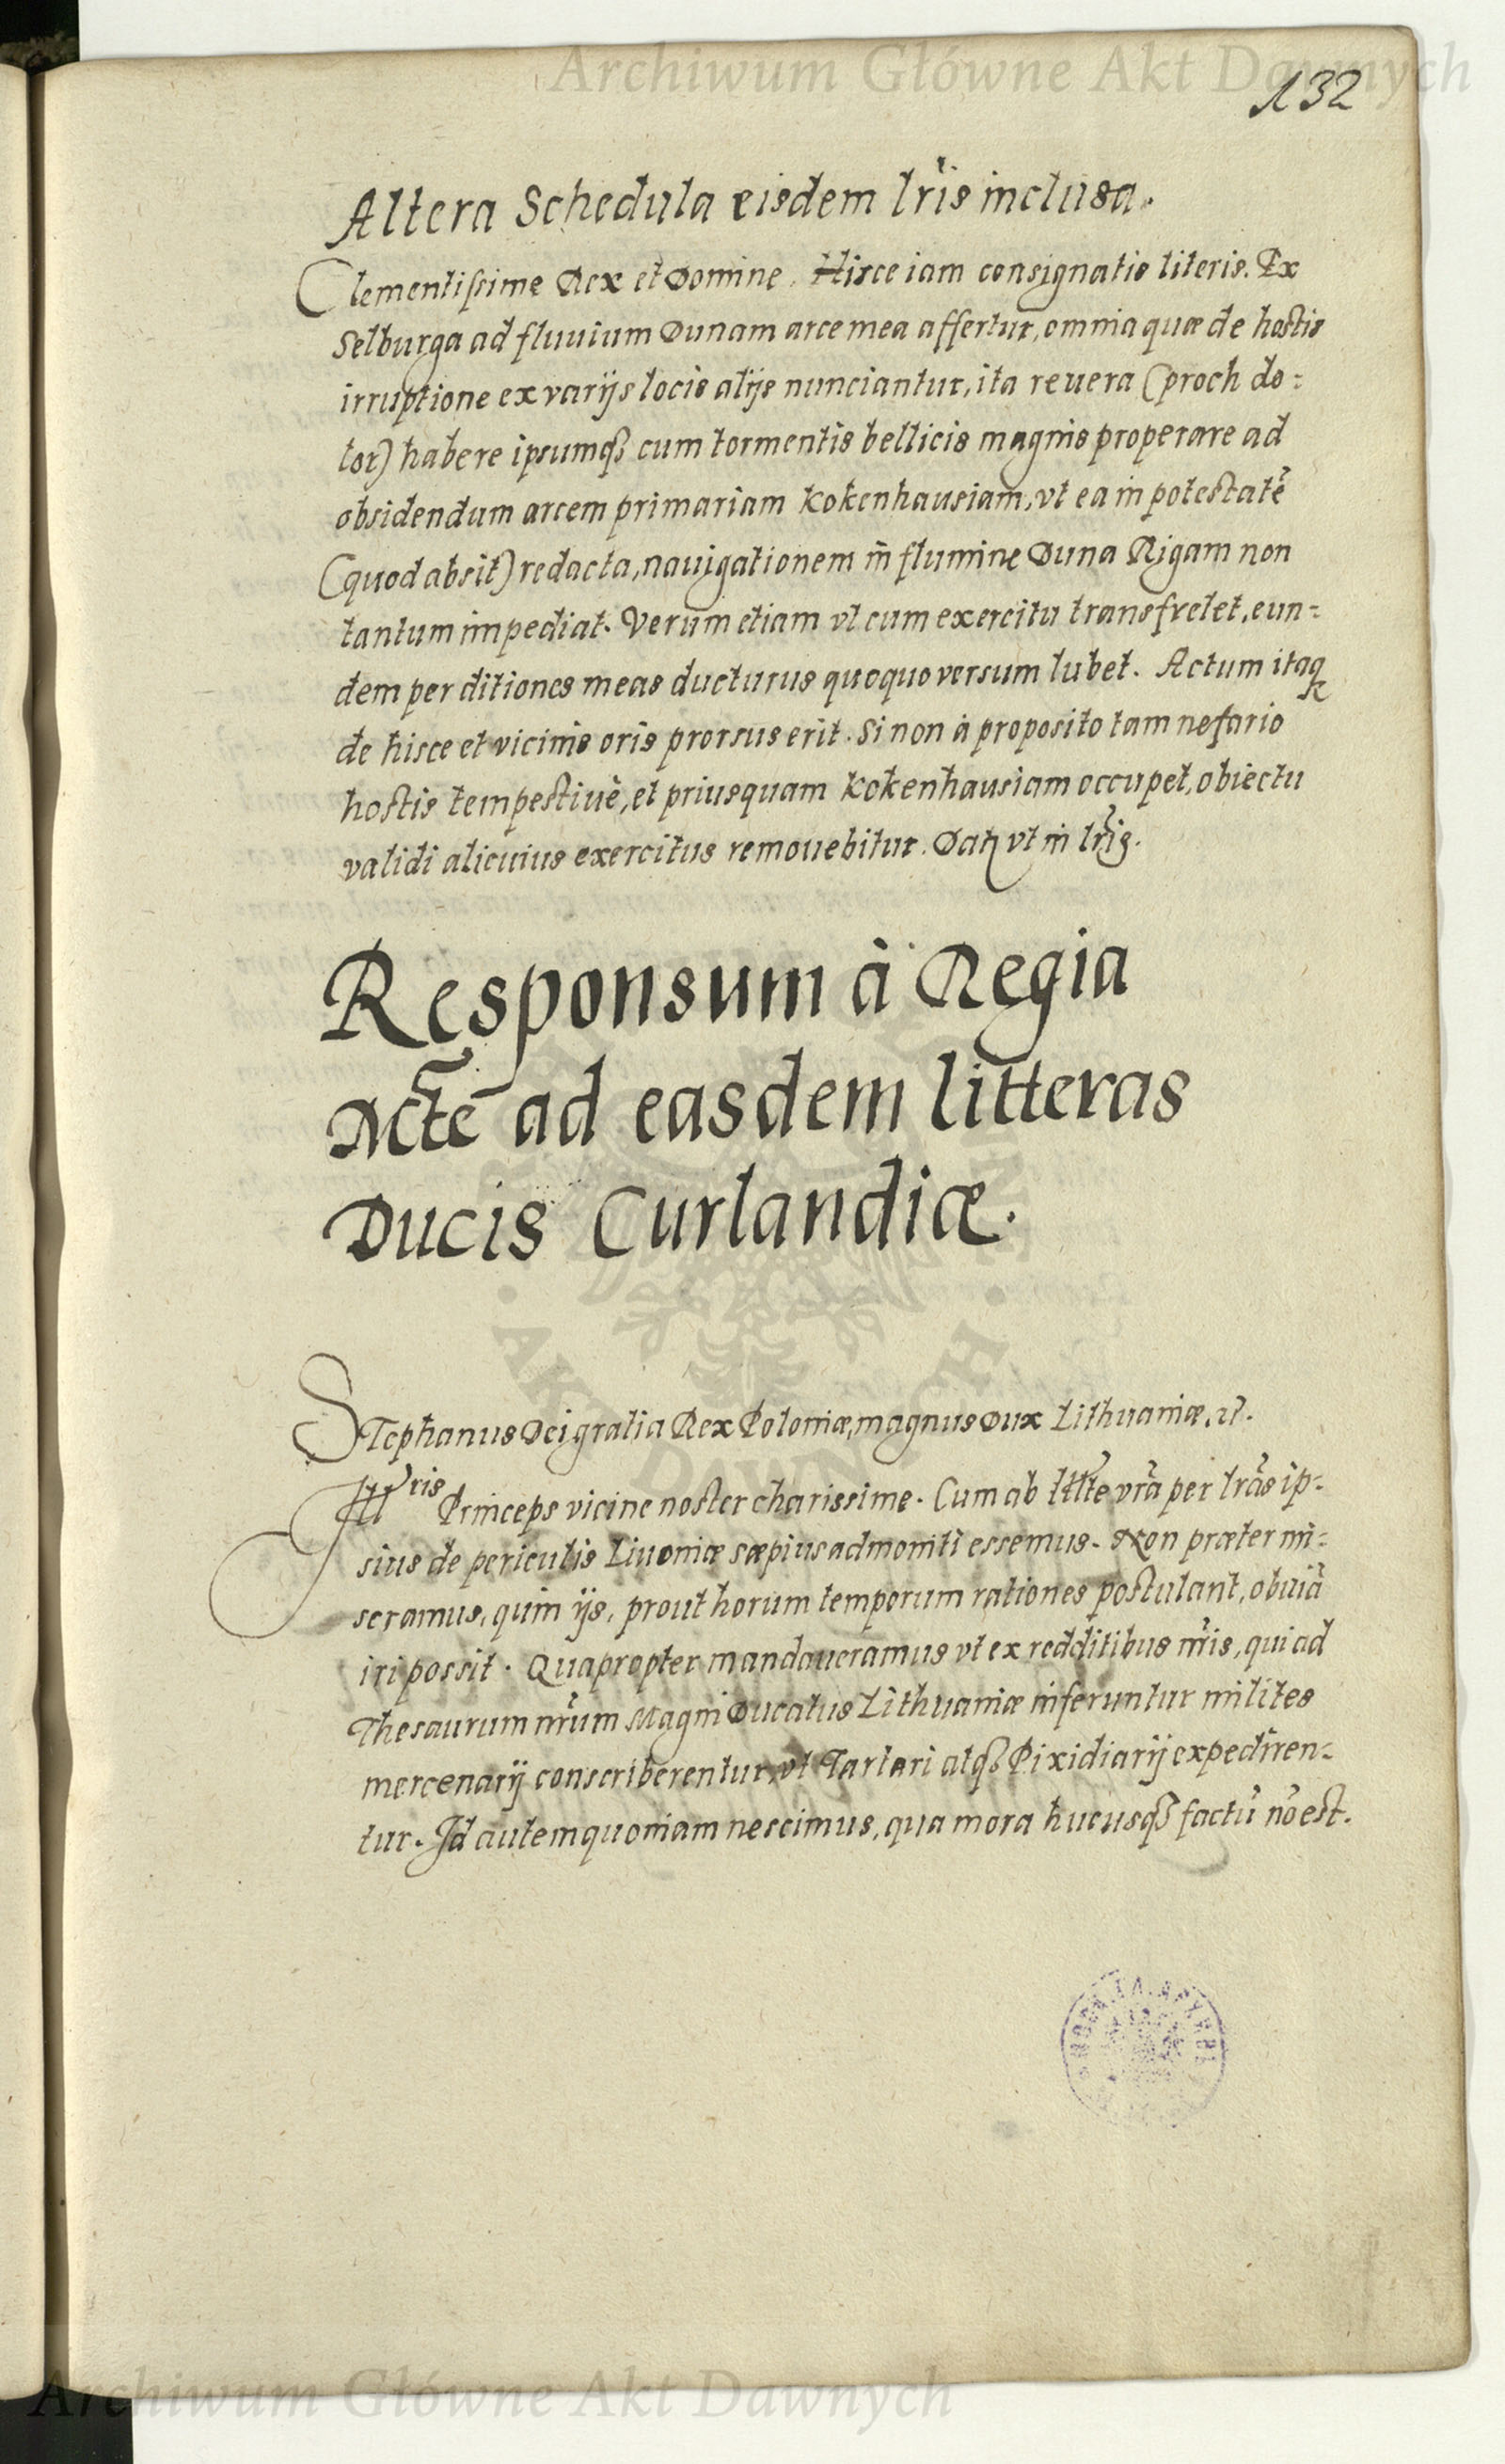 Archiwum Główne Akt Dawnych
132
Altera Schedula eisdem lris inclusa.
Clementissime Rex et Domine. Hisce iam consignatis literis. Ex
Selburga ad fluuium Dunam arce mea affertur, omnia quæ de hostis
irruptione ex varijs locis alijs nunciantur, ita reuera (proch do=
lor) habere ipsumq3 cum tormentis bellicis magnis properare ad
obsidendum arcem primariam Kokenhausiam, vt ea in potestatē
(quod absit) redacta, nauigationem in flumine Duna Rigam non
tantum impediat. Verum etiam vt cum exercitu transfretet, eun=
dem per ditiones meas ducturus quoquo versum lubet. Actum itaq
de hisce et vicinis oris prorsus erit. Si non à proposito tam nefario
hostis tempestiuè, et priusquam Kokenhausiam occupet, obiectu
validi alicuius exercitus remouebitur. Dat vt in lris.
Responsum à Regia
Mtē ad easdem litteras
Ducis Curlandiæ.
STephanus Dei gratia Rex Poloniæ, magnus Dux Lithuaniæ, et.
Ill ris Princeps vicine noster charissime. Cum ab Illte vrā per lrās ip=
sius de periculis Liuoniæ sæpius admoniti essemus. Non præter mi=
seramus, quin ijs, prout horum temporum rationes postulant, obuiā
iri possit. Quapropter mandaueramus vt ex redditibus nris, qui ad
Thesaurum nrum Magni Ducatus Lithuaniæ inferuntur milites
mercenarij conscriberentur, vt Tartari atq3 Pixidiarij expediren=
tur. Id autem quoniam nescimus, qua mora hucusq3 factū nō est.
AKT DAWNYCH
Archiwum Główne Akt Dawnych